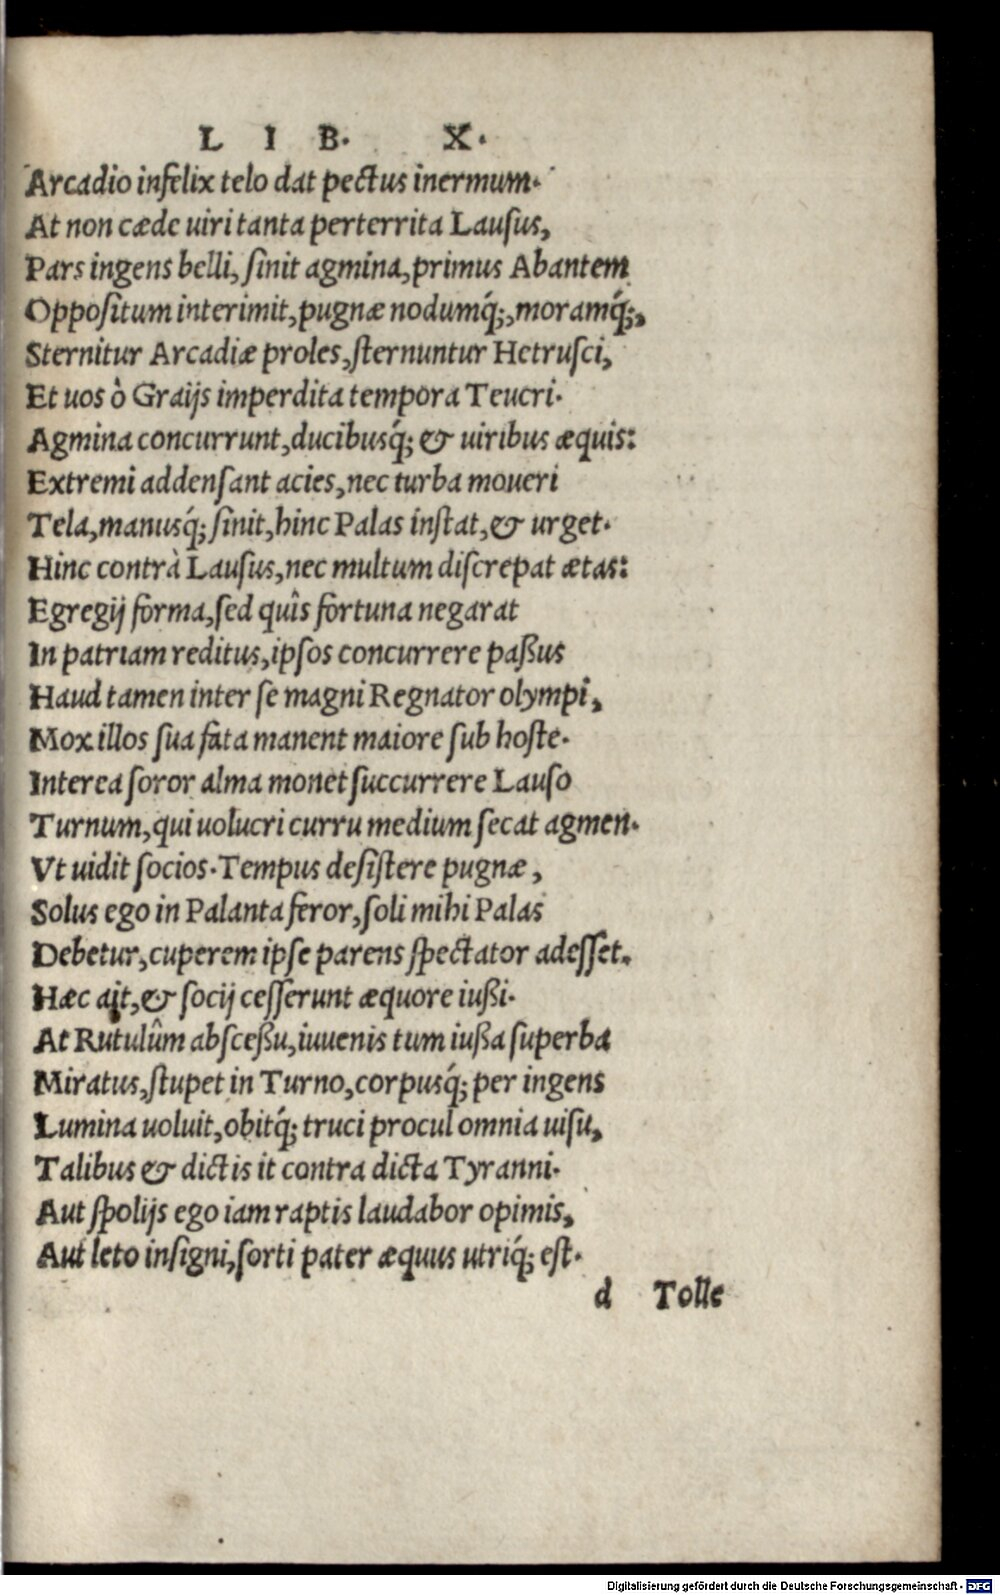 L I B. X.
Arcadio infelix telo dat pectus inermum.
At non cæde uiri tanta perterrita Lauſus,
Pars ingens belli, ſinit agmina, primus Abantem
Oppoſitum interimit, pugnæ nodumq́;, moramq́;,
Sternitur Arcadiæ proles, ſternuntur Hetruſci,
Et uos ò Graijs imperdita tempora Teucri.
Agmina concurrunt, ducibusq́; & uiribus æquis:
Extremi addenſant acies, nec turba moueri
Tela, manusq́; ſinit, hinc Palas inſtat, & urget.
Hinc contrà Lauſus, nec multum diſcrepat ætas:
Egregij forma, ſed quîs fortuna negarat
In patriam reditus, ipſos concurrere paßus
Haud tamen inter ſe magni Regnator olympi,
Mox illos ſua fata manent maiore ſub hoſte.
Interea ſoror alma monet ſuccurrere Lauſo
Turnum, qui uolucri curru medium ſecat agmen.
Vt uidit ſocios. Tempus deſiſtere pugnæ,
Solus ego in Palanta feror, ſoli mihi Palas
Debetur, cuperem ipſe parens ſpectator adeſſet.
Hæc ait, & ſocij ceſſerunt æquore iußi.
At Rutulûm abſceßu, iuuenis tum iußa ſuperba
Miratus, ſtupet in Turno, corpusq́; per ingens
Lumina uoluit, obitq́; truci procul omnia uiſu,
Talibus & dictis it contra dicta Tyranni.
Aut ſpolijs ego iam raptis laudabor opimis,
Aut leto inſigni, ſorti pater æquus utriq́; eſt.
d Tolle
Digitalisierung gefördert durch die Deutsche Forschungsgemeinschaft - DFG